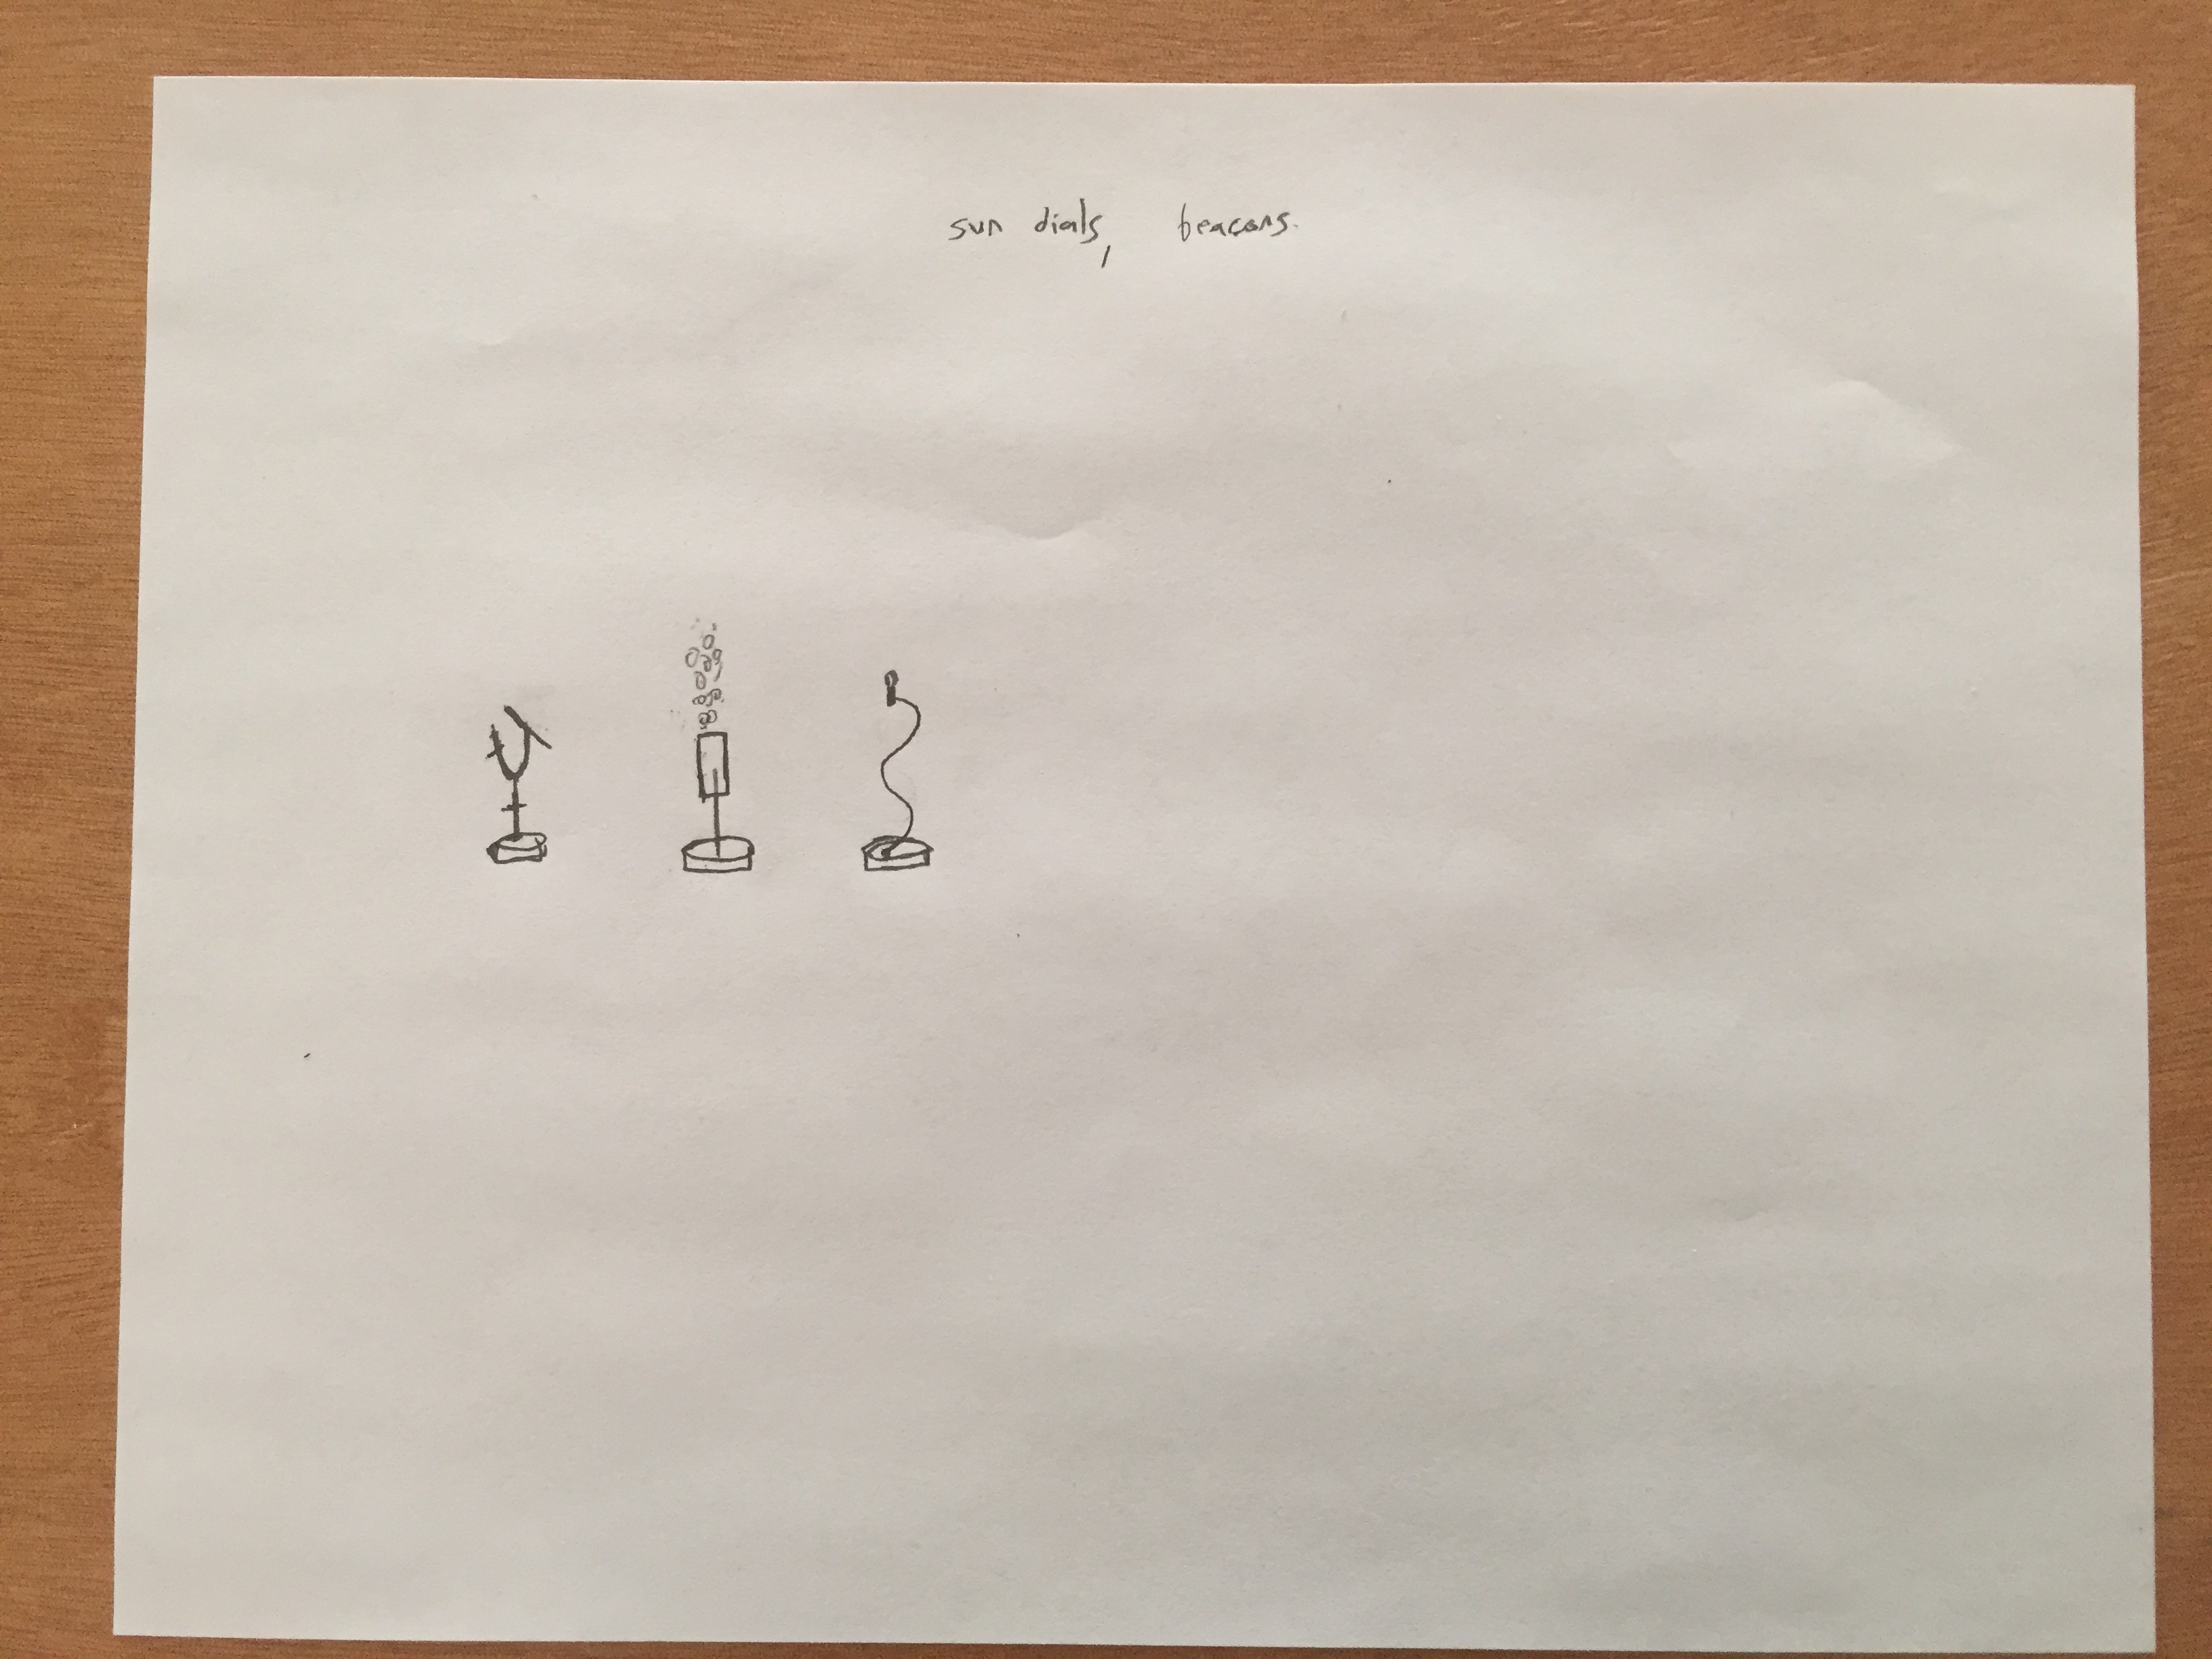 sun dials, beacons.